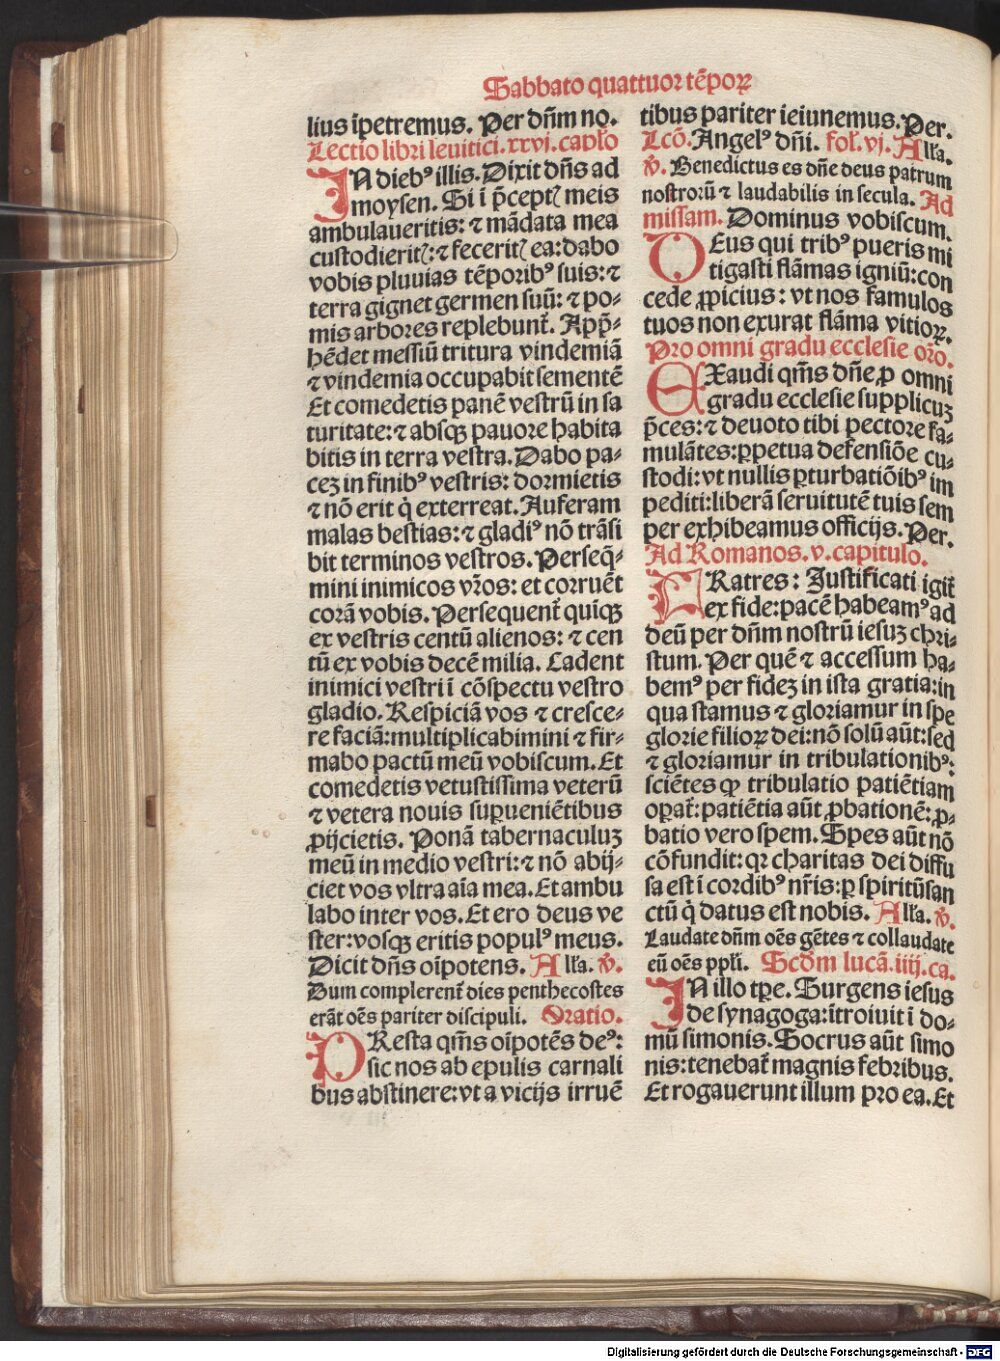 Sabbato quattuor tēporꝝ
lius īpetremus. Per dn̄m no.
Lectio libri leuitici. xxvi. capło
IN dieb⁹ illis. Dixit dn̄s ad
moysen. Si ī p̄ceptꝭ meis
ambulaueritis: ⁊ mādata mea
custodieritꝭ: ⁊ feceritꝭ ea: dabo
vobis pluuias tēporib⁹ suis: ⁊
terra gignet germen suū: ⁊ po⸗
mis arbores replebunt᷑. App̄⸗
hēdet messiū tritura vindemiā
⁊ vindemia occupabit sementē
Et comedetis panē vestrū in sa
turitate: ⁊ absqꝫ pauore habita
bitis in terra vestra. Dabo pa⸗
ceꝫ in finib⁹ vestris: dormietis
⁊ nō erit q̇ exterreat. Auferam
malas bestias: ⁊ gladi⁹ nō trāsi
bit terminos vestros. Perseq̄⸗
mini inimicos vr̄os: et corruēt
corā vobis. Persequent᷑ quīqꝫ
ex vestris centū alienos: ⁊ cen
tū ex vobis decē milia. Cadent
inimici vestri ī cōspectu vestro
gladio. Respiciā vos ⁊ cresce⸗
re faciā: multiplicabimini ⁊ fir⸗
mabo pactū meū vobiscum. Et
comedetis vetustissima veterū
⁊ vetera nouis suꝑueniētibus
ꝓijcietis. Ponā tabernaculuꝫ
meū in medio vestri: ⁊ nō abij⸗
ciet vos vltra aīa mea. Et ambu
labo inter vos. Et ero deus ve
ster: vosqꝫ eritis popul⁹ meus.
Dicit dn̄s oīpotens. Alła. ℣.
Dum complerent᷑ dies penthecostes
erāt oēs pariter discipuli. Oratio.
PResta qm̄s oīpotēs de⁹:
sic nos ab epulis carnali
bus abstinere: vt a vicijs irruē
tibus pariter ieiunemus. Per.
Lcō. Angel⁹ dn̄i. foł. vj. Alła.
℣. Benedictus es dn̄e deus patrum
nostrorū ⁊ laudabilis in secula. Ad
missam. Dominus vobiscum.
DEus qui trib⁹ pueris mi
tigasti flāmas igniū: con
cede ꝓpicius: vt nos famulos
tuos non exurat flāma vitioꝝ.
Pro omni gradu ecclesie orō.
EXaudi qm̄s dn̄e ꝓ omni
gradu ecclesie supplicuꝫ
p̄ces: ⁊ deuoto tibi pectore fa⸗
mulātes: ꝑpetua defensiōe cu⸗
stodi: vt nullis ꝑturbatiōib⁹ im
pediti: liberā seruitutē tuis sem
per exhibeamus officijs. Per.
Ad Romanos. v. capitulo.
FRatres: Justificati igit᷑
ex fide: pacē habeam⁹ ad
deū per dn̄m nostrū iesuꝫ chri⸗
stum. Per quē ⁊ accessum ha⸗
bem⁹ per fideꝫ in ista gratia: in
qua stamus ⁊ gloriamur in spe
glorie filioꝝ dei: nō solū aūt: sed
⁊ gloriamur in tribulationib⁹:
sciētes ꝙ tribulatio patiētiam
oꝑat᷑: patiētia aūt ꝓbationē: ꝓ⸗
batio vero spem. Spes aūt nō
cōfundit: qꝛ charitas dei diffu
sa est ī cordib⁹ nr̄is: ꝑ spiritū san
ctū q̇ datus est nobis. Alła. ℣.
Laudate dn̄m oēs gētes ⁊ collaudate
eū oēs ppłi. Scd̄m lucā. iiij. ca.
IN illo tꝑe. Surgens iesus
de synagoga: ītroiuit ī do⸗
mū simonis. Socrus aūt simo
nis: tenebat᷑ magnis febribus.
Et rogauerunt illum pro ea. Et
Digitalisierung gefördert durch die Deutsche Forschungsgemeinschaft - DFG